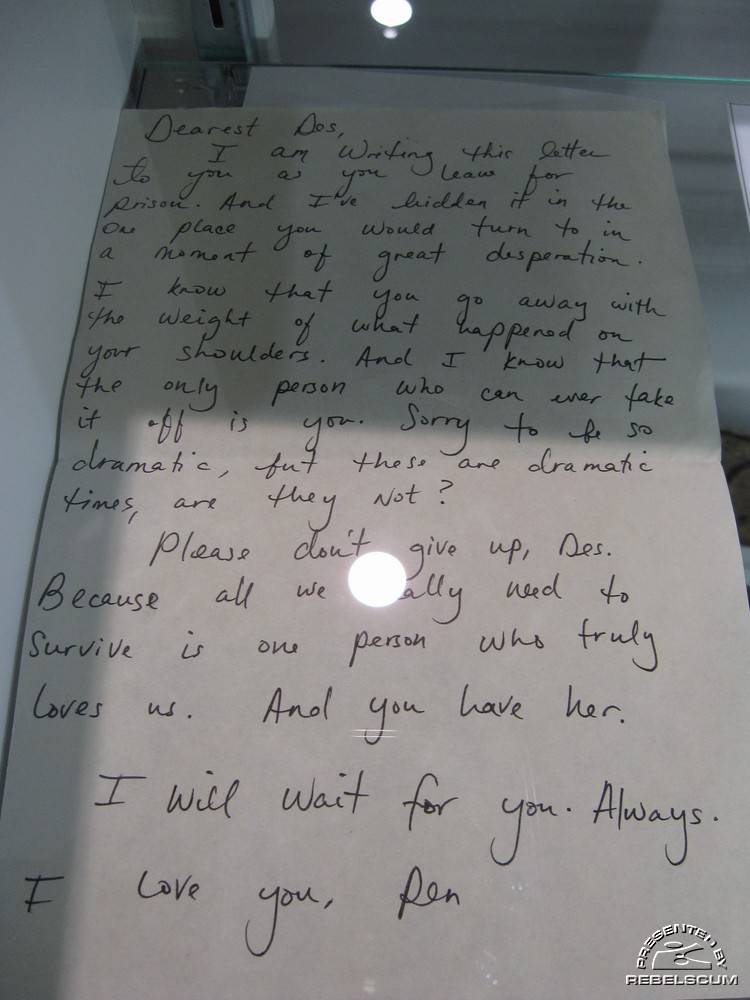 Dearest Des,
I am writing this letter
to you as you leave for
prison. And I've hidden it in the
one place you would turn to in
a moment of great desperation.
I know that you go away with
the weight of what happened on
your shoulders. And I know that
the only person who can ever take
it off is you. Sorry to be so
dramatic, but these are dramatic
times, are they not?
Please don't give up, Des.
Because all we ally need to
survive is one person who truly
loves us. And you have her.
I will wait for you. Always.
I love you, Pen
PRESENTED BY
REBELSCUM